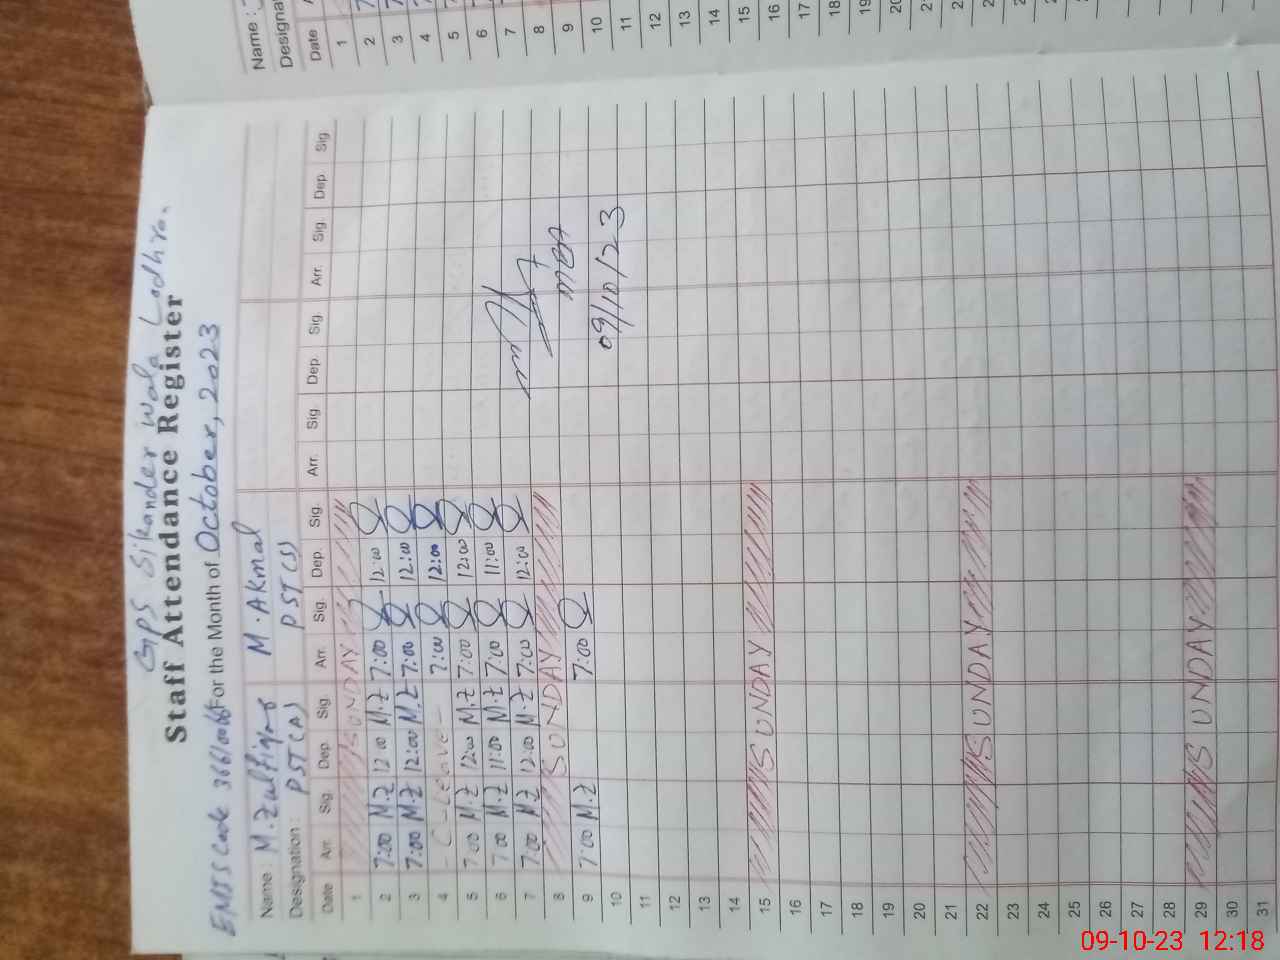 GPS Sikander Wala Lodhran
Staff Attendance Register
EMIS Code 36610066 For the Month of October, 2023
Name : M. Zulfiqar M. Akmal
Designation : PST (A) PST (S)
Date Arr. Sig. Dep. Sig. Arr. Sig. Dep. Sig. Arr. Sig. Dep. Sig. Arr. Sig. Dep. Sig
1 SUNDAY
2 7:00 M.Z 12:00 M.Z 7:00 12:00
3 7:00 M.Z 12:00 M.Z 7:00 12:00
4 - C-Leave - 7:00 12:00
5 7:00 M.Z 12:00 M.Z 7:00 12:00
6 7:00 M.Z 11:00 M.Z 7:00 11:00
7 7:00 M.Z 12:00 M.Z 7:00 12:00
8 SUNDAY
9 7:00 M.Z 7:00
MEA
09/10/23
10
11
12
13
14
15 SUNDAY
16
17
18
19
20
21
22 SUNDAY
23
24
25
26
27
28
29 SUNDAY
30
31
Name :
Designa
Date
1
2
3
4
5
6
7
8
9
10
11
12
13
14
15
16
17
18
19
20
09-10-23 12:18